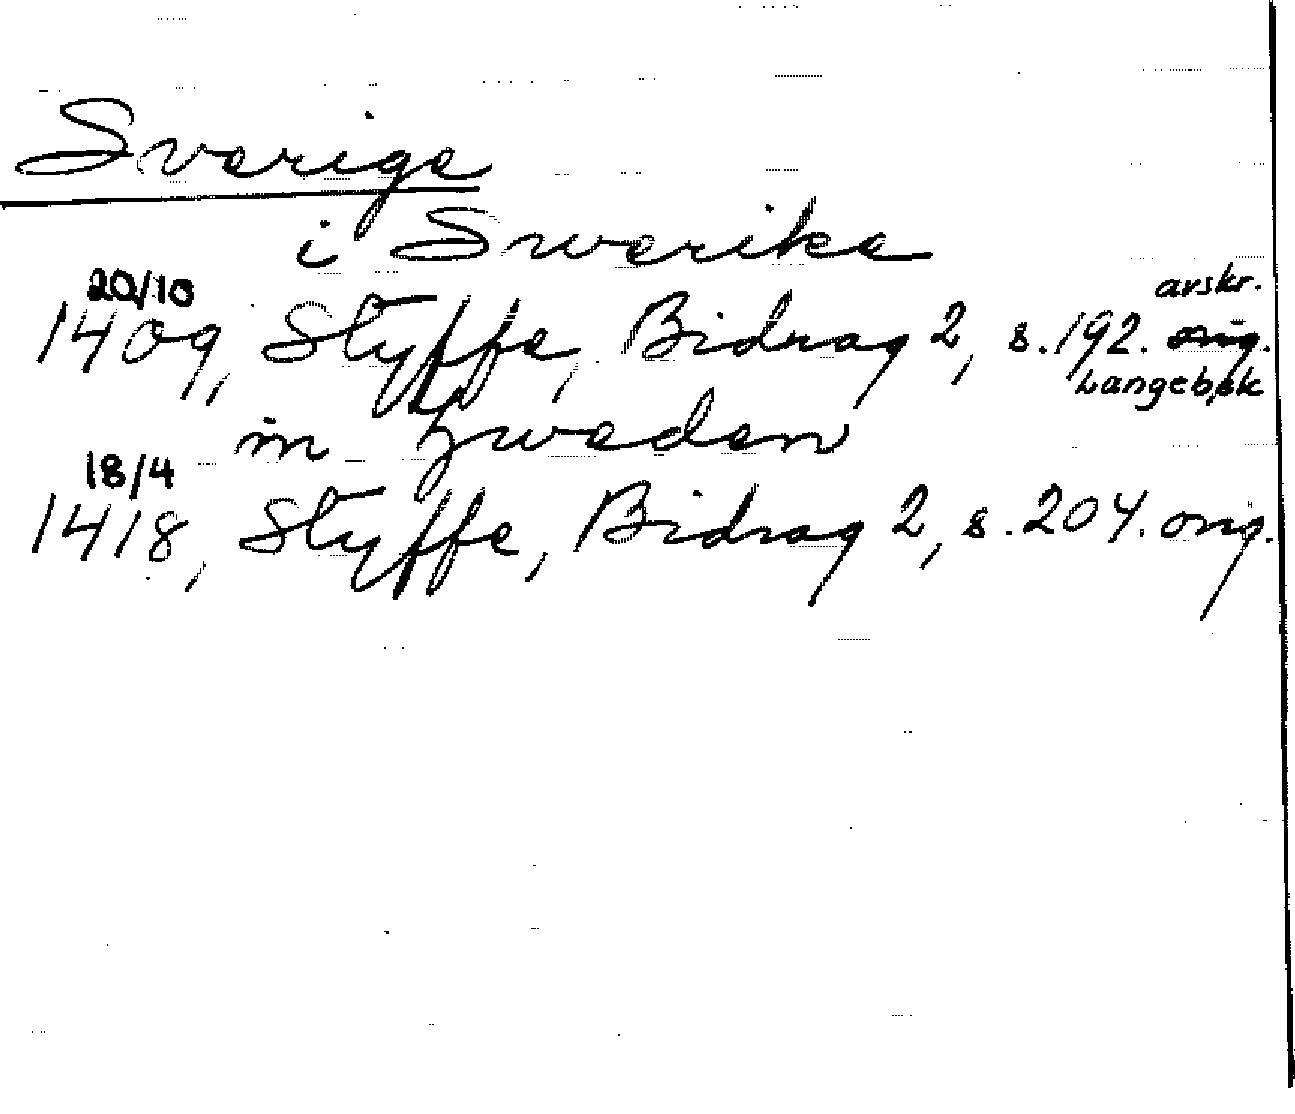 Sverige
i Swerike
20/10 avskr.
1409, Styffe, Bidrag 2, s. 192. orig.
Langebek
in Zweden
18/4
1418, Styffe, Bidrag 2, s. 204. orig.